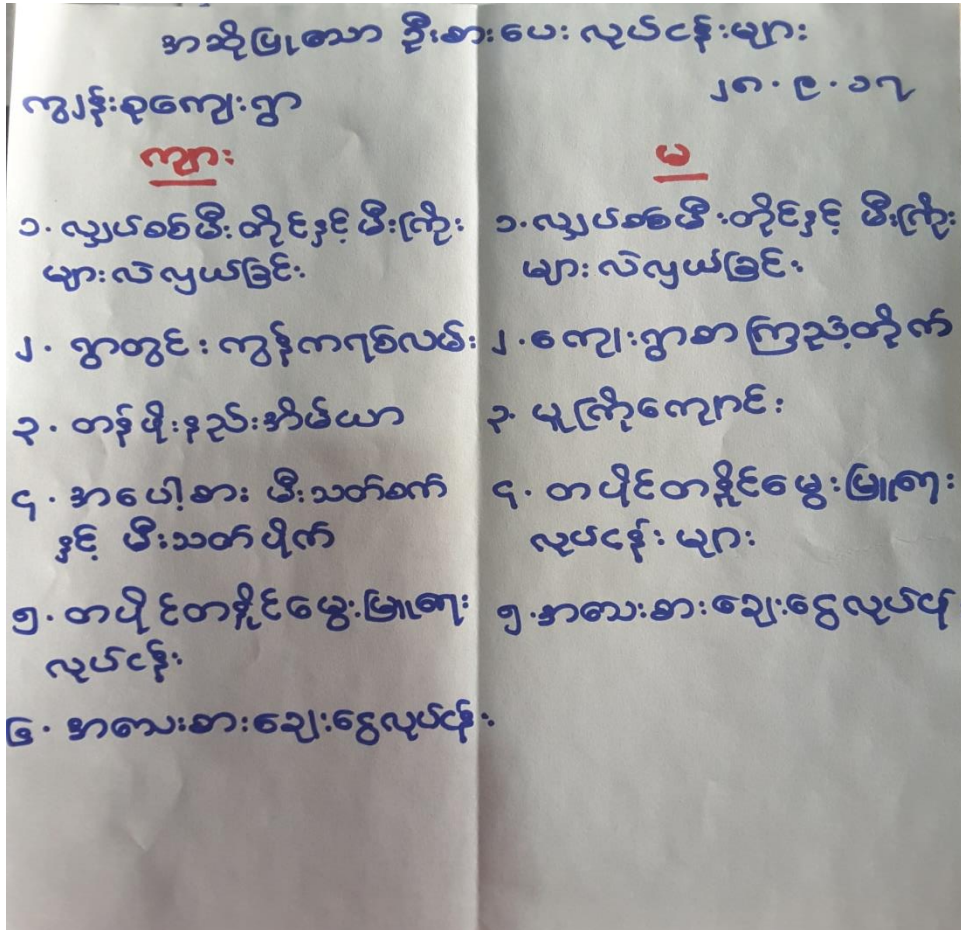 အဆိုပြုသော ဦးစားပေး လုပ်ငန်းများ
၂၈.၉.၁၇
ကျွန်းစုကျေးရွာ
ကျား
၁. လျှပ်စစ်မီး တိုင်နှင့် မီးကြိုး
များလဲလှယ်ခြင်း
၂. ရွာတွင်း ကွန်ကရစ်လမ်း
၃. တန်ဖိုးနည်းအိမ်ယာ
၄. အပေါ့စား မီးသတ်စက်
နှင့် မီးသတ်ပိုက်
၅. တပိုင်တနိုင်မွေးမြူရေး
လုပ်ငန်း
၆. အသေးစားချေးငွေလုပ်ငန်း
မ
၁. လျှပ်စစ်မီးတိုင်နှင့် မီးကြိုး
များလဲလှယ်ခြင်း
၂. ကျေးရွာစာကြည့်တိုက်
၃. မူကြိုကျောင်း
၄. တပိုင်တနိုင်မွေးမြူရေး
လုပ်ငန်း များ
၅. အသေးစားချေးငွေလုပ်ငန်း